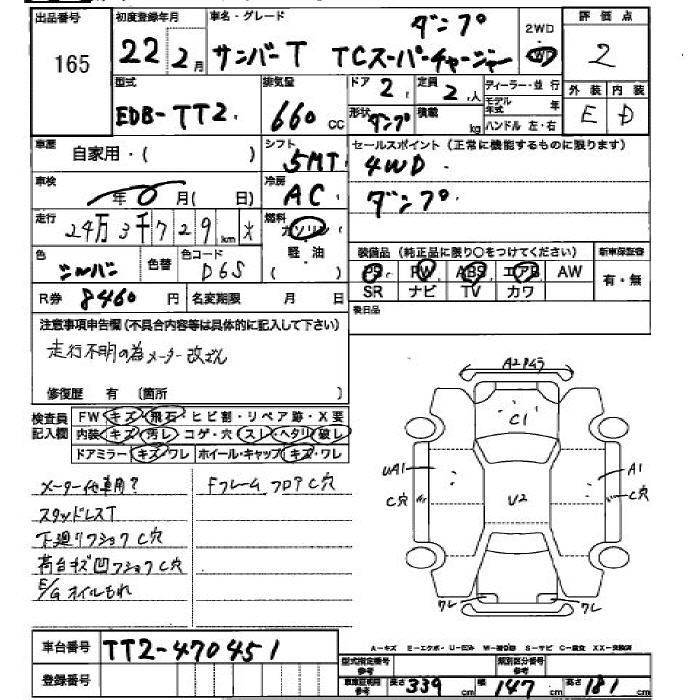 出品番号 初度登録年月 車名・グレード ダンプ 2WD 評価点
165 22年 2月 サンバーT TCスーパーチャージャー 2
型式 排気量 ドア 2 定員 2人 ディーラー・並行 外装 内装
EDB-TT2 660cc 形状 ダンプ 積載 kg モデル年式 年 ハンドル 左・右 E D
車歴 自家用・( ) シフト 5MT セールスポイント(正常に機能するものに限ります)
4WD
車検 年 月( 日) 冷房 AC ダンプ
走行 24万3千729km 燃料 ガソリン
軽・油
色 シルバー 色替 色コード D6S 装備品(純正品に限り○をつけてください) 新車保証書
PS PW ABS エアB AW 有・無
SR ナビ TV カワ
R券 8460円 名変期限 月 日 後日品
注意事項申告欄(不具合内容等は具体的に記入して下さい)
走行不明の為メーター改ざん
修復歴 有 〔箇所 〕
検査員記入欄 FW キズ・飛石・ヒビ割・リペア跡・X要
内装・キズ・汚レ・コゲ・穴・スレ・ヘタリ・破レ
ドアミラー・キズ・ワレ ホイール・キャップ・キズ・ワレ
メーター他車用? Fフレームフロアc穴
スタッドレスT
下廻リ c穴
荷台キズ凹 c穴
E/Gオイルもれ
A2
C1
UA1 A1
C穴 U2 C穴
ワレ ワレ
車台番号 TT2-470451
A-キズ E-エクボ
型式指定番号 類別区分番号
登録番号 長さ 339cm 幅 147cm 高さ 181cm